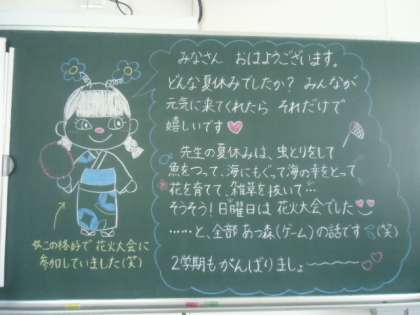 みなさん おはようございます。
どんな夏休みでしたか？ みんなが
元気に来てくれたら それだけで
嬉しいです
先生の夏休みは、虫とりをして
魚をつって、海にもぐって海の幸をとって
花を育てて、雑草を抜いて…
そうそう！日曜日は 花火大会でした
……と、全部 あつ森(ゲーム)の話です (笑)
2学期もがんばりましょ〜
この格好で 花火大会に
参加していました(笑)